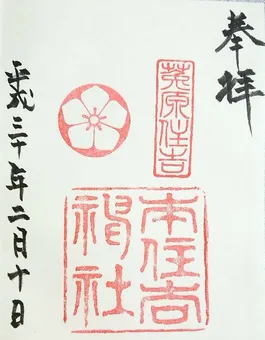 奉拝
菟原住吉
本住吉
神社
平成三十年二月十日